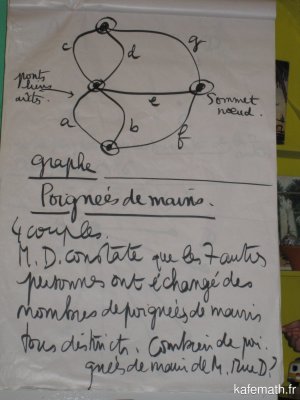 c
d
g
ponts
liens
arêts
e
Sommet
nœud.
a
b
f
graphe
Poignées de mains.
4 couples.
M. D. constate que les 7 autres
personnes ont échangé des
nombres de poignées de mains
tous distincts. Combien de poi-
gnées de main de M. Mme D?
kafemath.fr